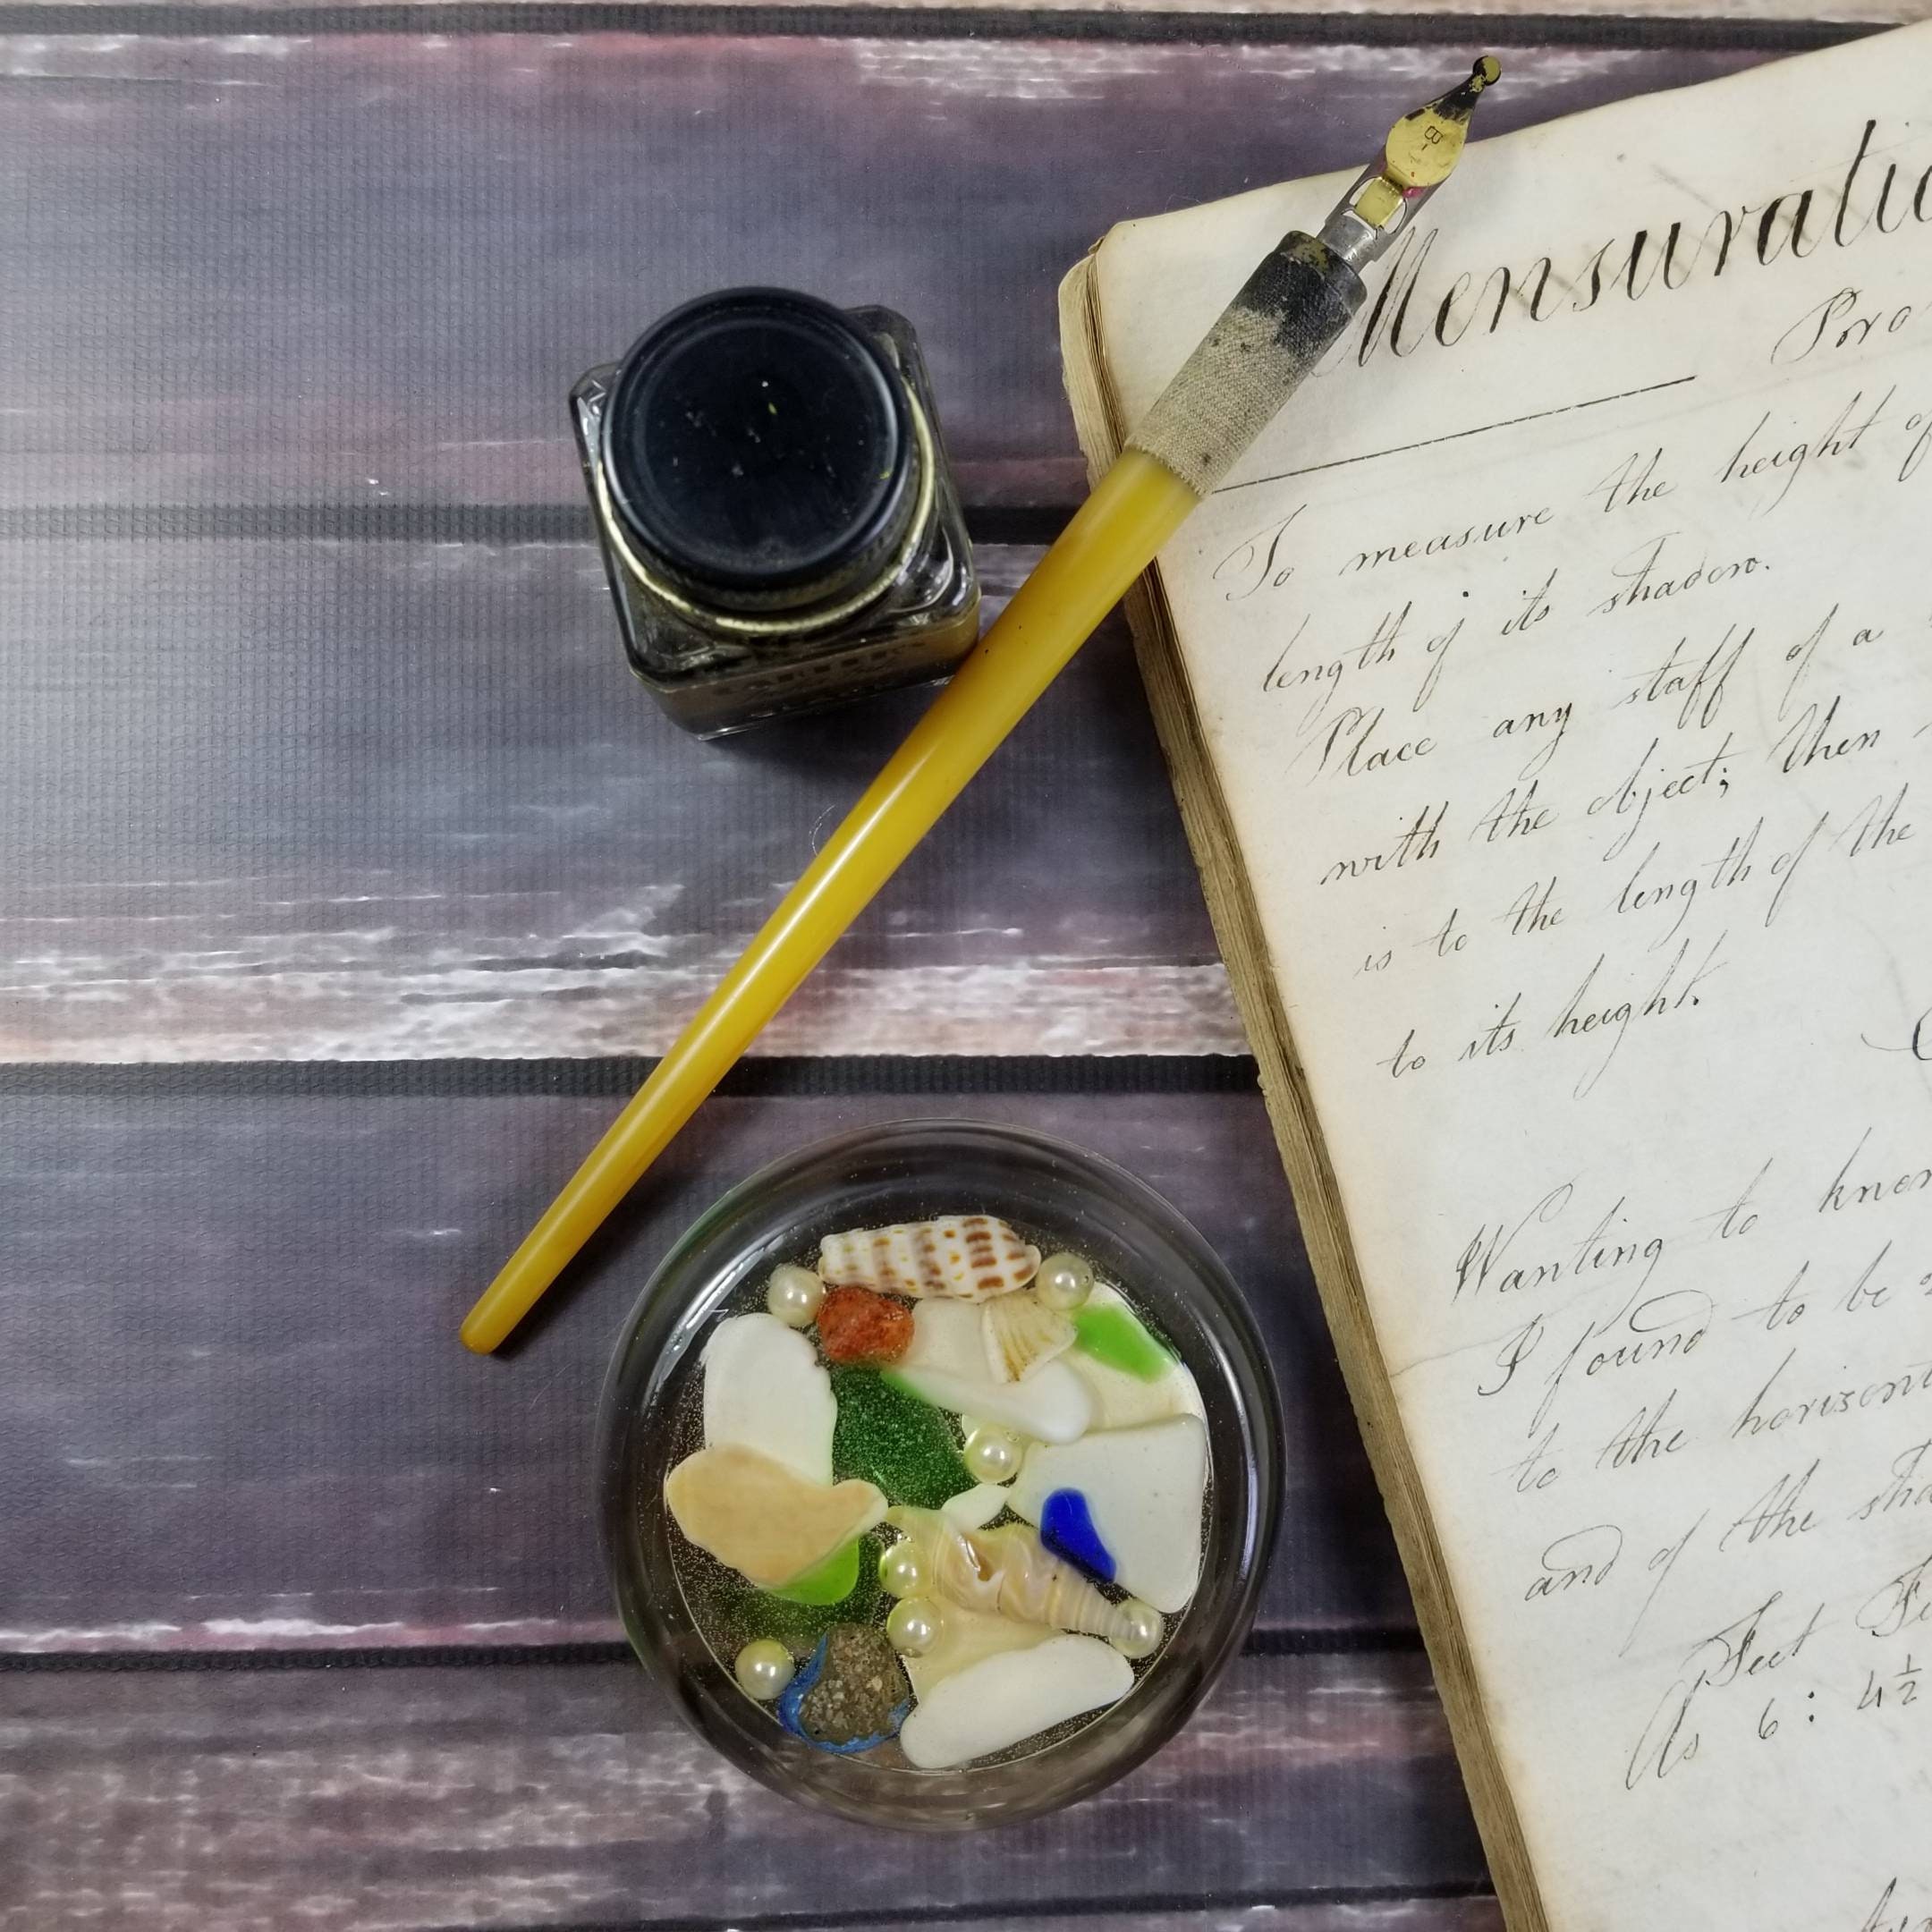 Mensuratio
Pro
To measure the height of
length of its shadow.
Place any staff of a
with the object; then
is to the length of the
to its height.
Wanting to know
I found to be
to the horizont
and of the sha
Feet Fe
As 6 : 4½